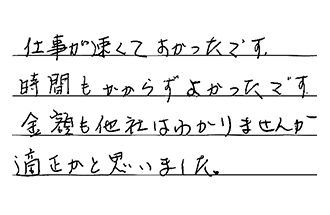 仕事が速くてよかったです。
時間もかからずよかったです。
金額も他社はわかりませんが
適正かと思いました。